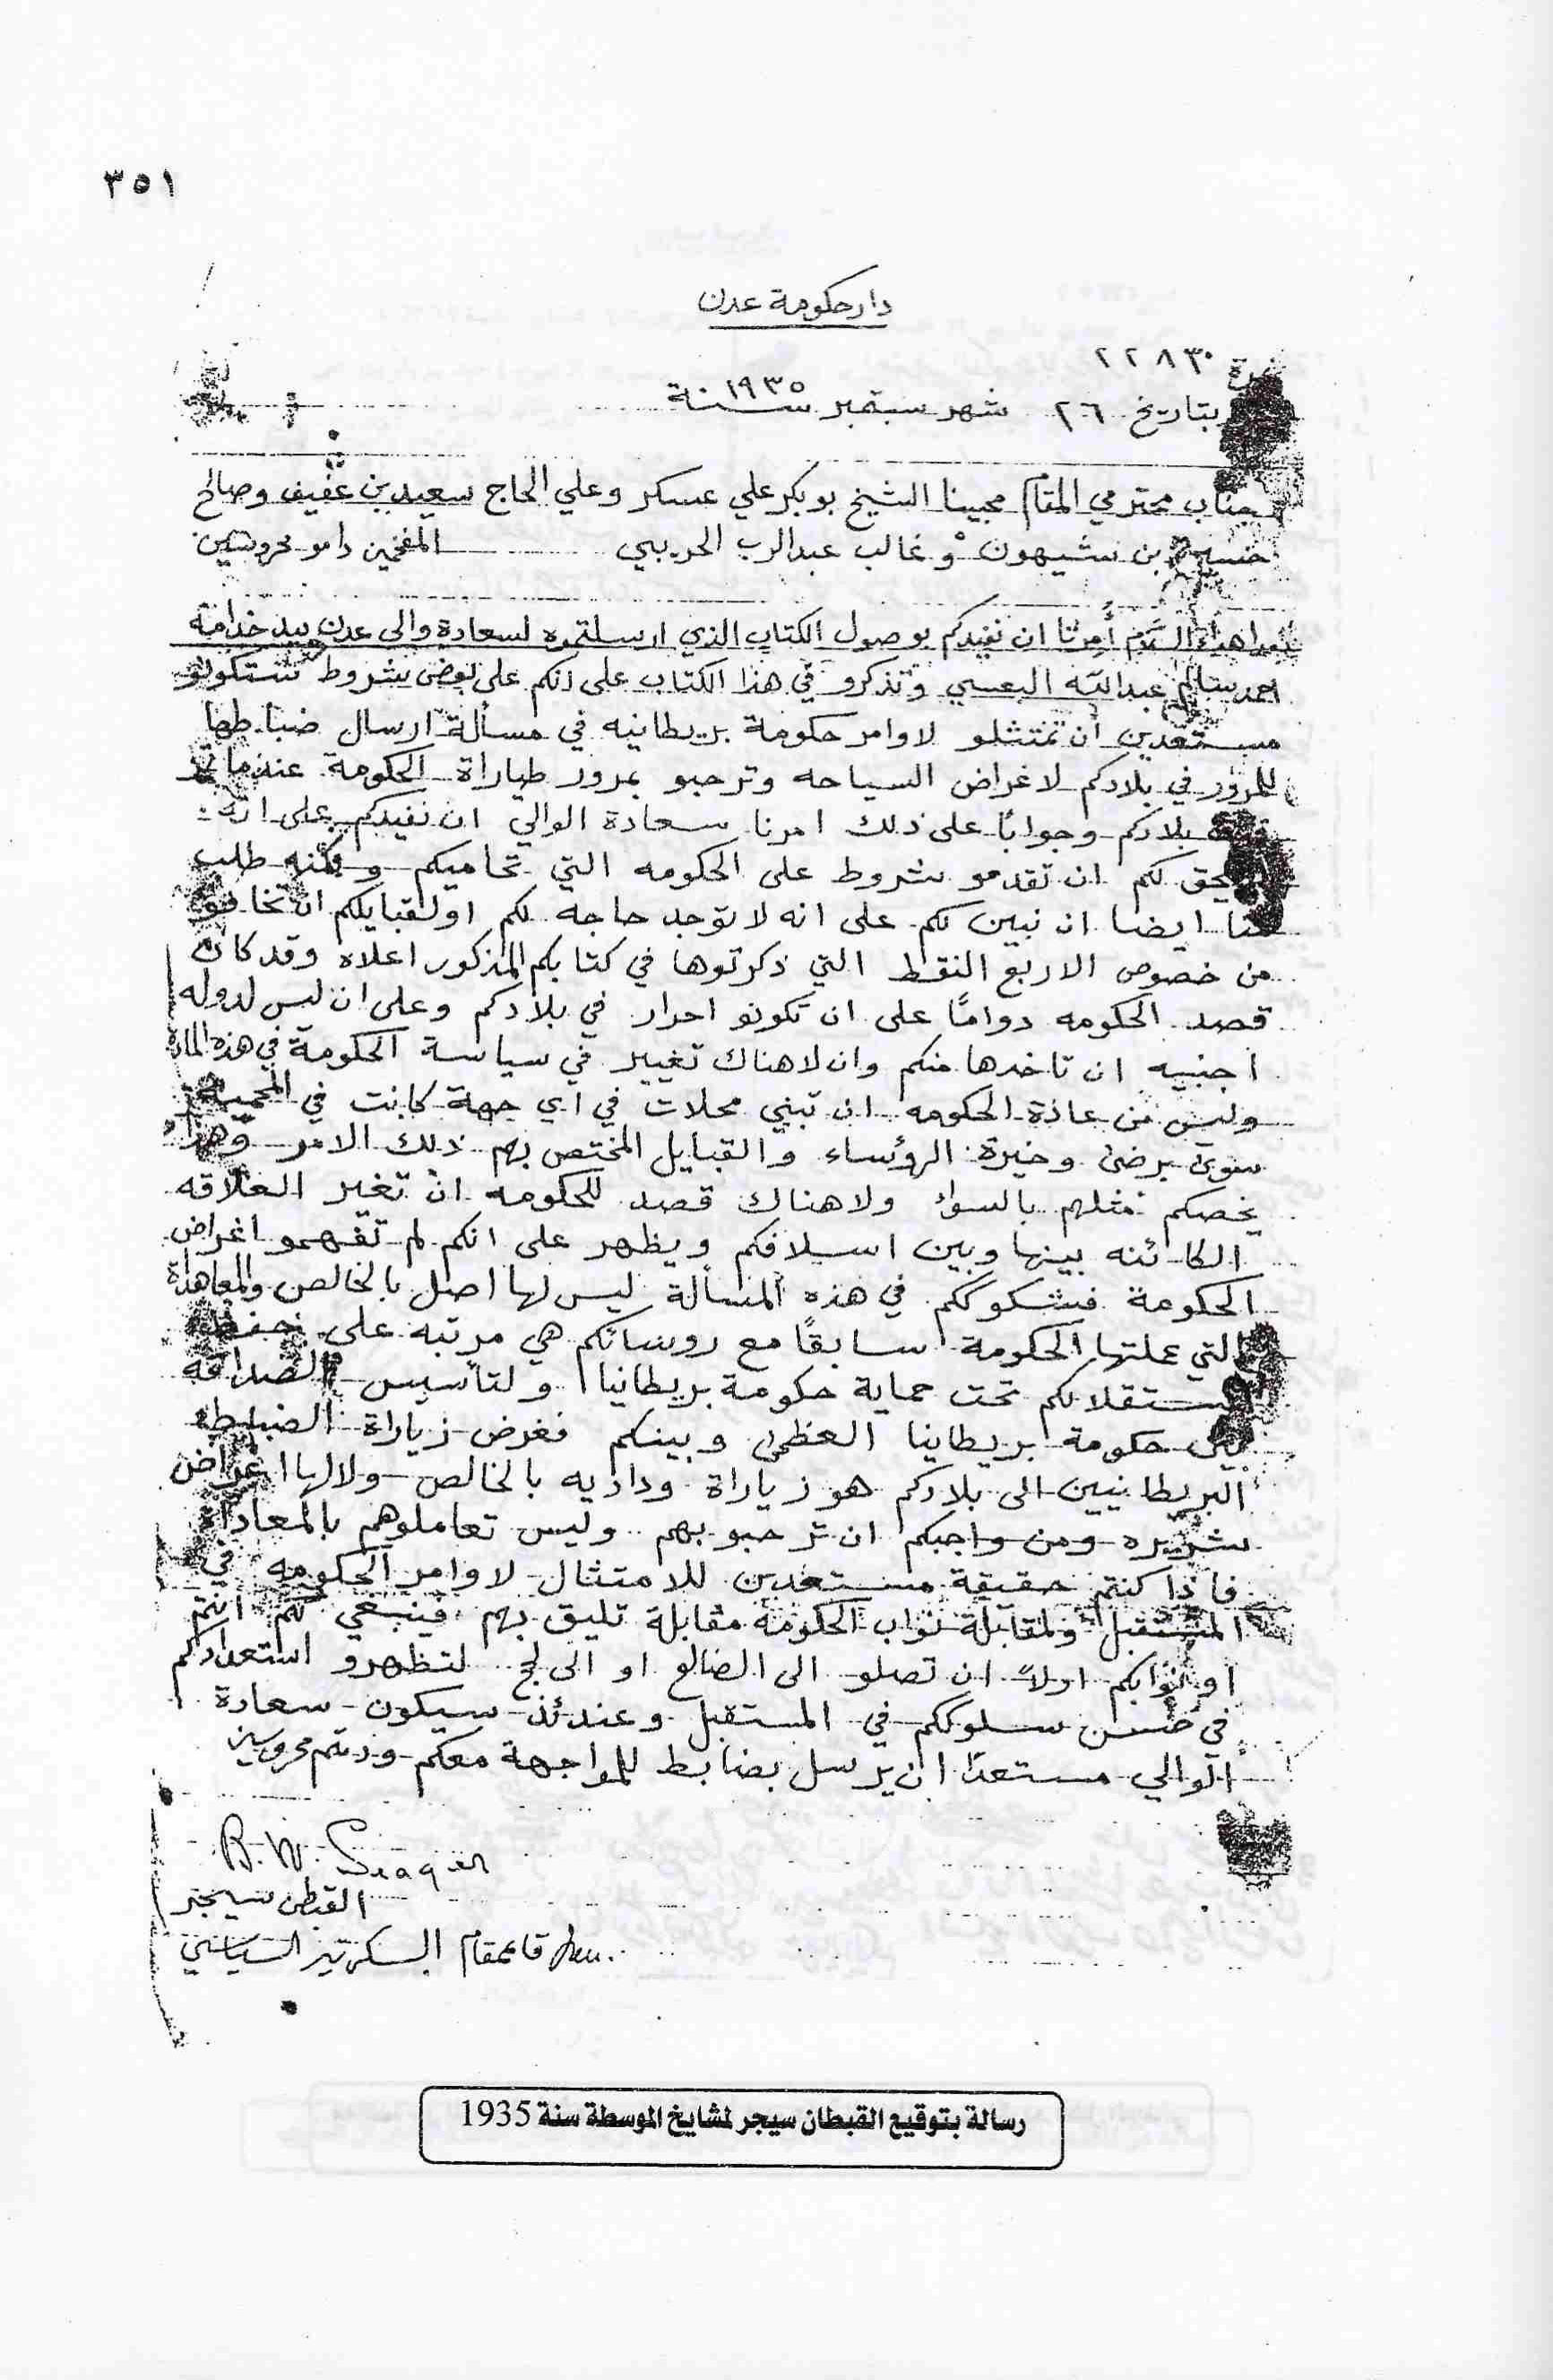 ٣٥١
دار حكومة عدن
نمرة ٢٢٨٣٠
بتاريخ ٢٦ شهر سبتمبر سنة ١٩٣٥
جناب محترمي المقام محبينا الشيخ بوبكر علي عسكر وعلي الحاج سعيد بن عفيف وصالح
حسين بن شيهون و غالب عبدالرب الحريبي المفخمين دامو محروسين
بعد اهداء السلام أمرنا ان نفيدكم بوصول الكتاب الذي ارسلتموه لسعادة والى عدن بيد خدامة
احمد سالم عبدالله البعسي وتذكرو في هذا الكتاب على انكم على بعض شروط ستكونو
مستعدين أن تمتثلو لاوامر حكومة بريطانيه في مسألة ارسال ضباطها
للمرور في بلادكم لاغراض السياحه وترحبو بمرور طياراة الحكومة عندما
بلادكم وجوابًا على ذلك امرنا سعادة الوالي ان نفيدكم على انه
يحق لكم ان تقدمو شروط على الحكومه التي تحاميكم ولكنه طلب
منا ايضا ان نبين لكم على انه لا توجد حاجه لكم او لقبايلكم ان تخافو
من خصوص الاربع النقط التي ذكرتوها في كتابكم المذكور اعلاه وقد كان
قصد الحكومه دوامًا على ان تكونو احرار في بلادكم وعلى ان ليس لدوله
اجنبيه ان تاخدها منكم وان لا هناك تغيير في سياسة الحكومة في هذه المادة
وليس من عادة الحكومه ان تبني محلات في اي جهة كانت في المحمية
سوى برضى وخيرة الرؤساء والقبايل المختص بهم ذلك الامر وهذا
يخصكم مثلهم بالسواء ولا هناك قصد للحكومه ان تغير العلاقه
الكائنه بينها وبين اسلافكم ويظهر على انكم لم تفهمو اغراض
الحكومة فشكوككم في هذه المسألة ليس لها اصل بالخالص والمعاهداة
التي عملتها الحكومة سابقًا مع روسائكم هي مرتبه على حفظ
استقلالكم تحت حماية حكومة بريطانيا ولتأسيس الصداقه
بين حكومة بريطاينا العظمى وبينكم فغرض زياراة الضباط
البريطانيين الى بلادكم هو زياراة وداديه بالخالص ولا لها اغراض
شريره ومن واجبكم ان ترحبو بهم وليس تعاملوهم بالمعاداة
فاذا كنتم حقيقة مستعدين للامتثال لاوامر الحكومه في
المستقبل ولمقابلة نواب الحكومة مقابلة تليق بهم فينبغي لكم انتم
او نوابكم اولاً ان تصلو الى الضالع او الى لحج لتظهرو استعدادكم
في حسن سلوككم في المستقبل وعندئذ سيكون سعادة
الوالي مستعدًا ان يرسل بضابط للمواجهة معكم ودمتم محروسين
B. W. Seager
القبطن سيجر
قائمقام السكرتير السياسي
رسالة بتوقيع القبطان سيجر لمشايخ الموسطة سنة 1935